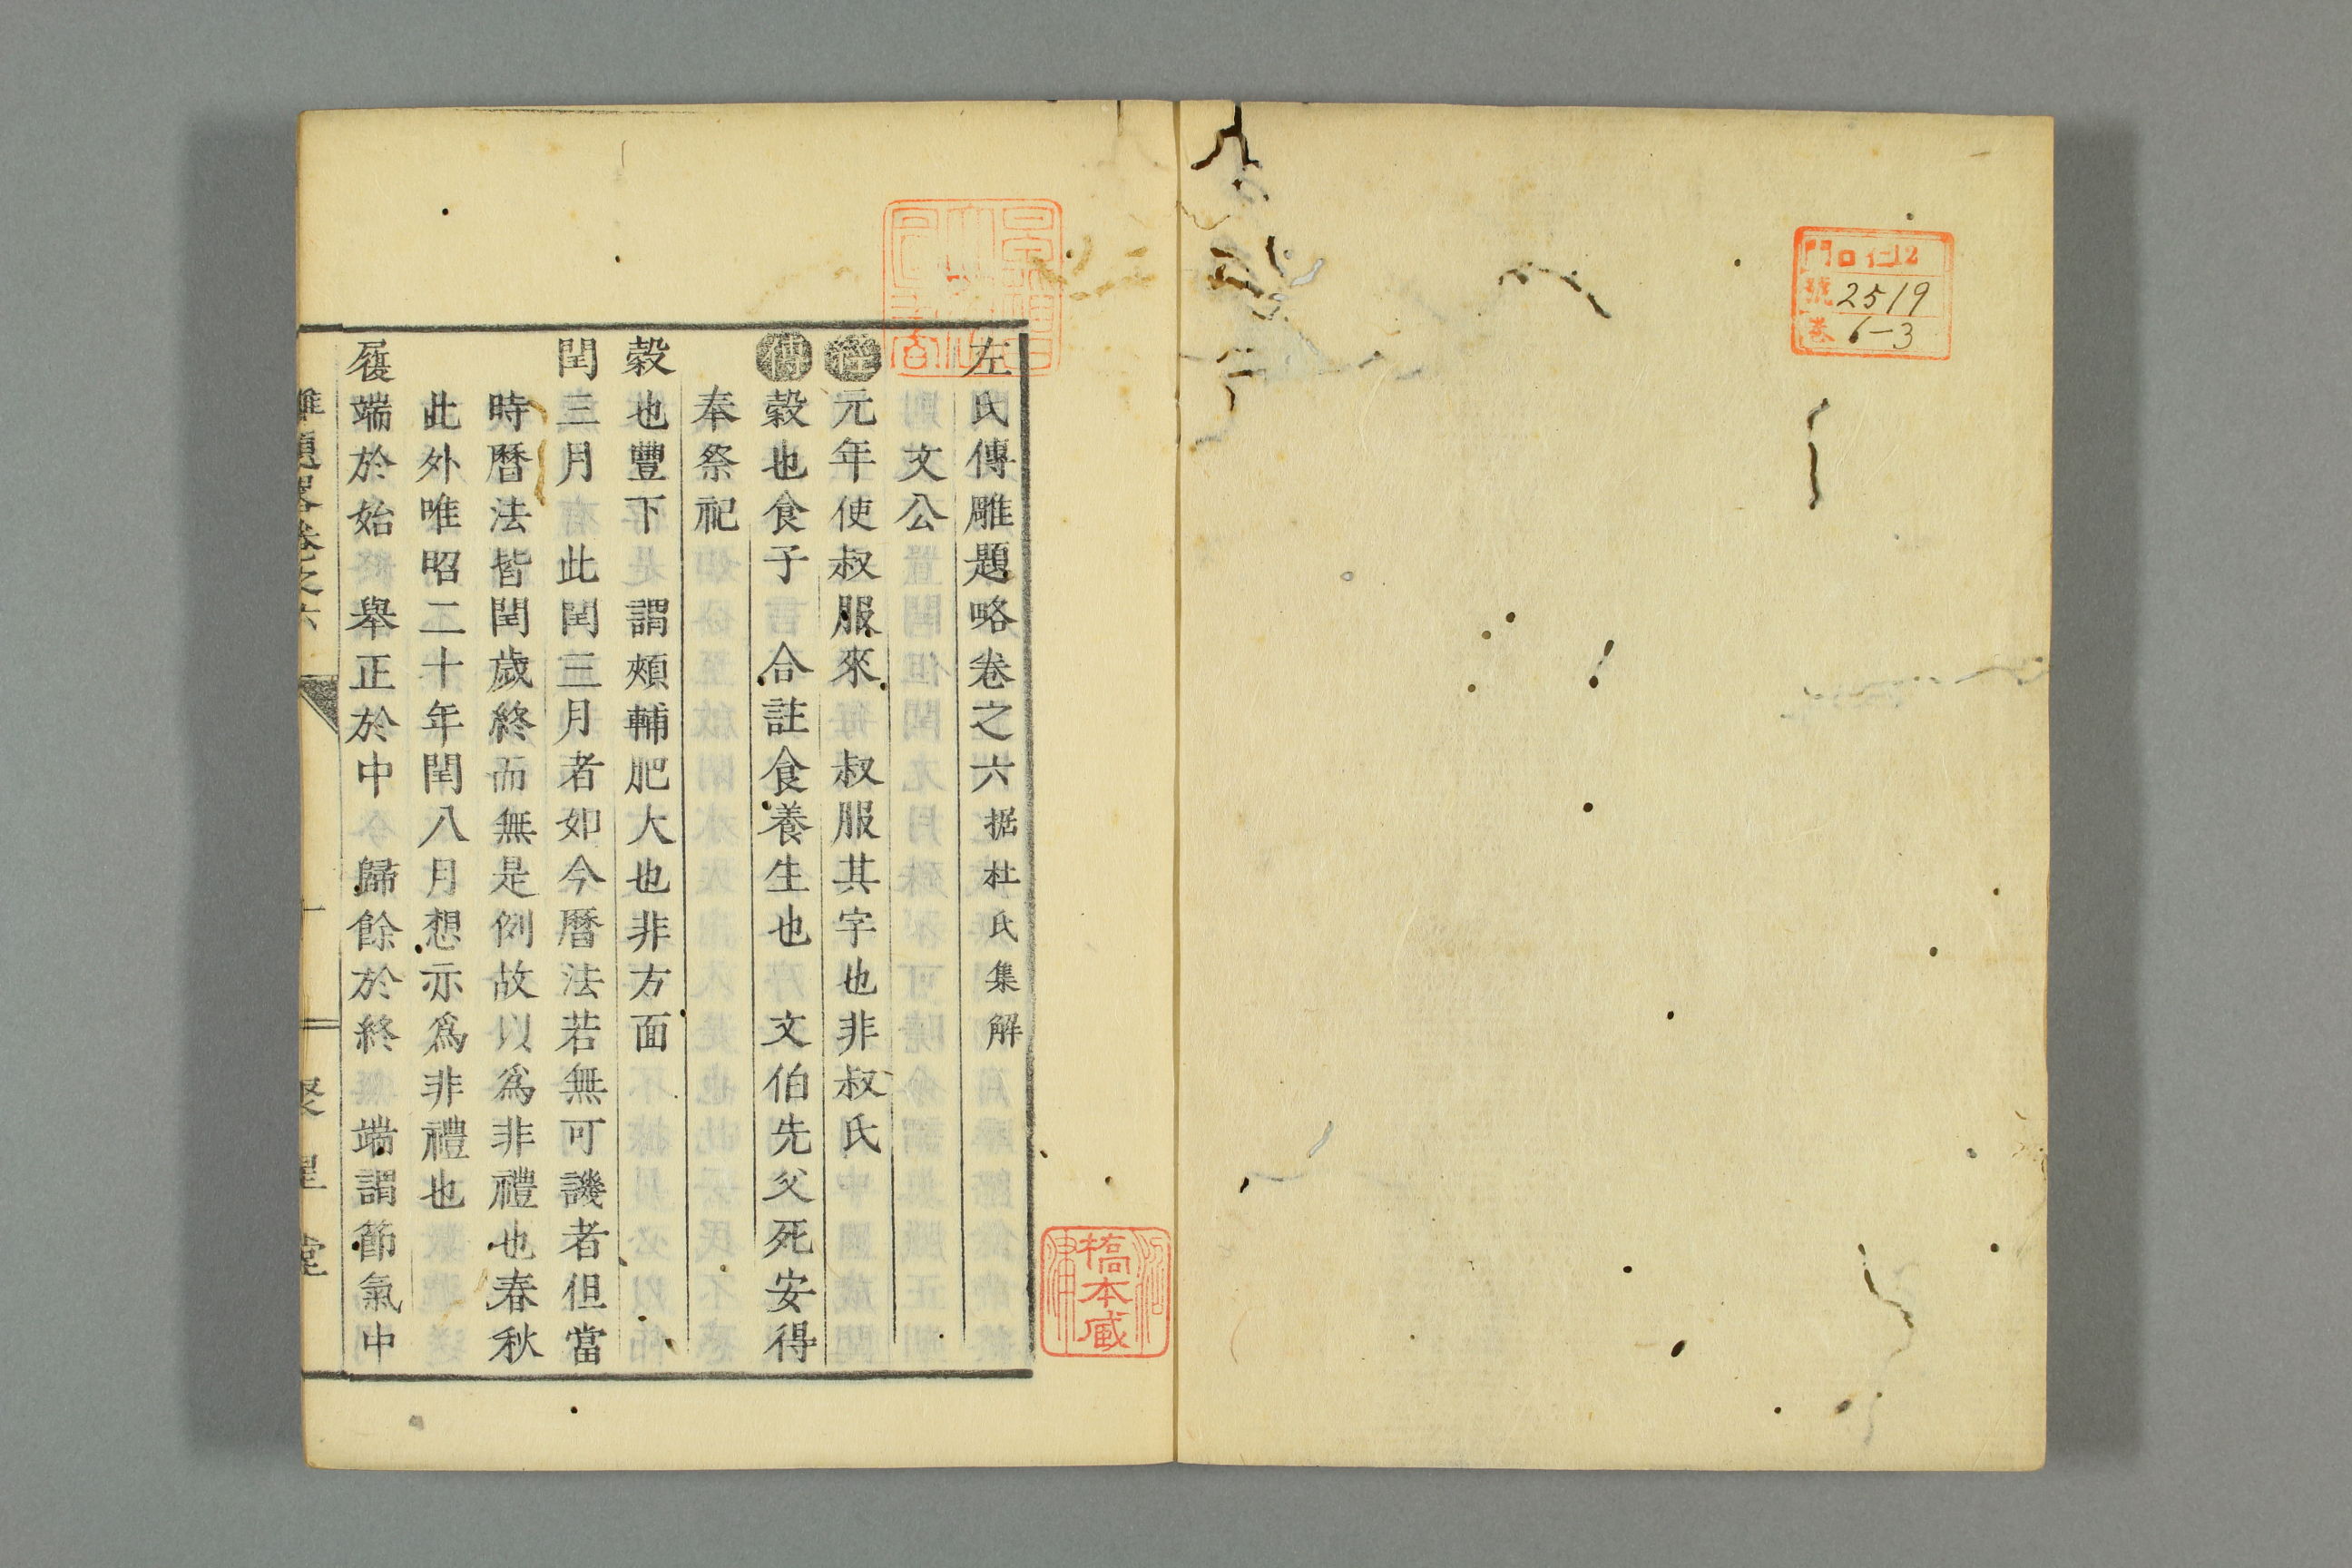 門 口仁12
號 2519
卷 6-3
左氏傳雕題略卷之六 据杜氏集解
文公
經 元年使叔服來 叔服其字也非叔氏
傳 穀也食子 合註食養生也 文伯先父死安得
奉祭祀
穀也豐下 謂頰輔肥大也非方面
閏三月 此閏三月者如今曆法若無可譏者但當
時曆法皆閏歲終而無是例故以爲非禮也春秋
此外唯昭二十年閏八月想亦爲非禮也
履端於始 舉正於中 歸餘於終 端謂節氣中
雕題畧卷之六
聚星堂
橋本藏